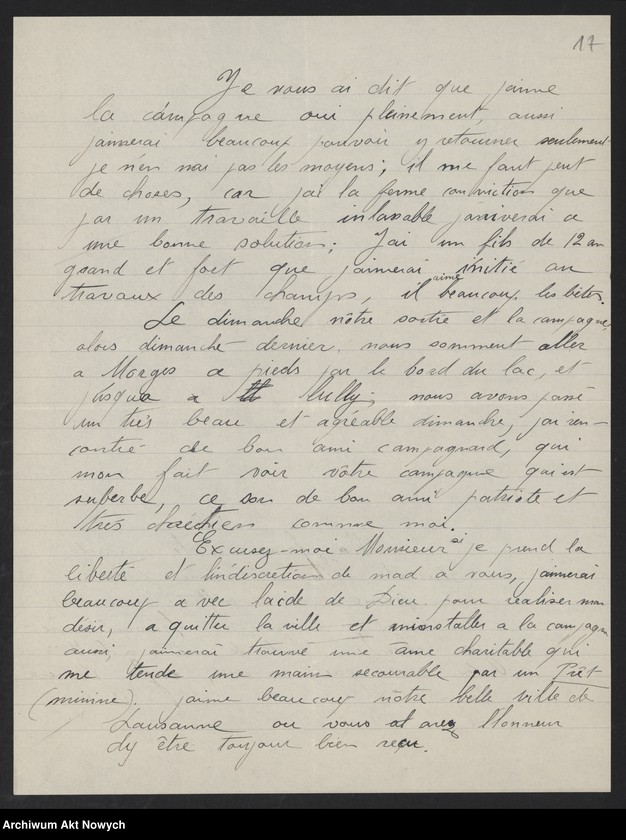 17
Je vous ai dit que jaime
la campagne oui pleinement, aussi
jaimerai beaucoup pouvoir y retourner seulement
je n'en nai pas les moyens; il me faut peut
de choses, car jai la ferme conviction que
par un travaille inlassable jariverai a
une bonne solution; Jai un fils de 12 an
grand et fort que jaimerai initié au
travaux des champs, il aime beaucoup les bêtes.
Le dimandhe nôtre sortie et la campagne,
alors dimanche dernier nous somment aller
a Morges a pieds par le bord du lac, et
jusqua a Lully; nous avons passé
un très beau et agréable dimandhe, jai ren-
contré de bon ami campagnard, qui
mon fait voir vôtre campagne qui est
suberbe, ce son de bon ami patriote et
très chrêtiens comme moi.
Excusez-moi Monsieur si je prend la
liberté et lindiscretion de mad a vous, jaimerai
beaucoup avec laide de Dieu pour réaliser mon
désir, a quitter la ville et minstaller a la campagne
aussi, jaimerai trouvé une âme charitable qui
me tende une main secourable par un Prêt
(minine). jaime beaucoup nôtre belle ville de
Lausanne ou vous avez lhonneur
dy être toujour bien recu.
Archiwum Akt Nowych